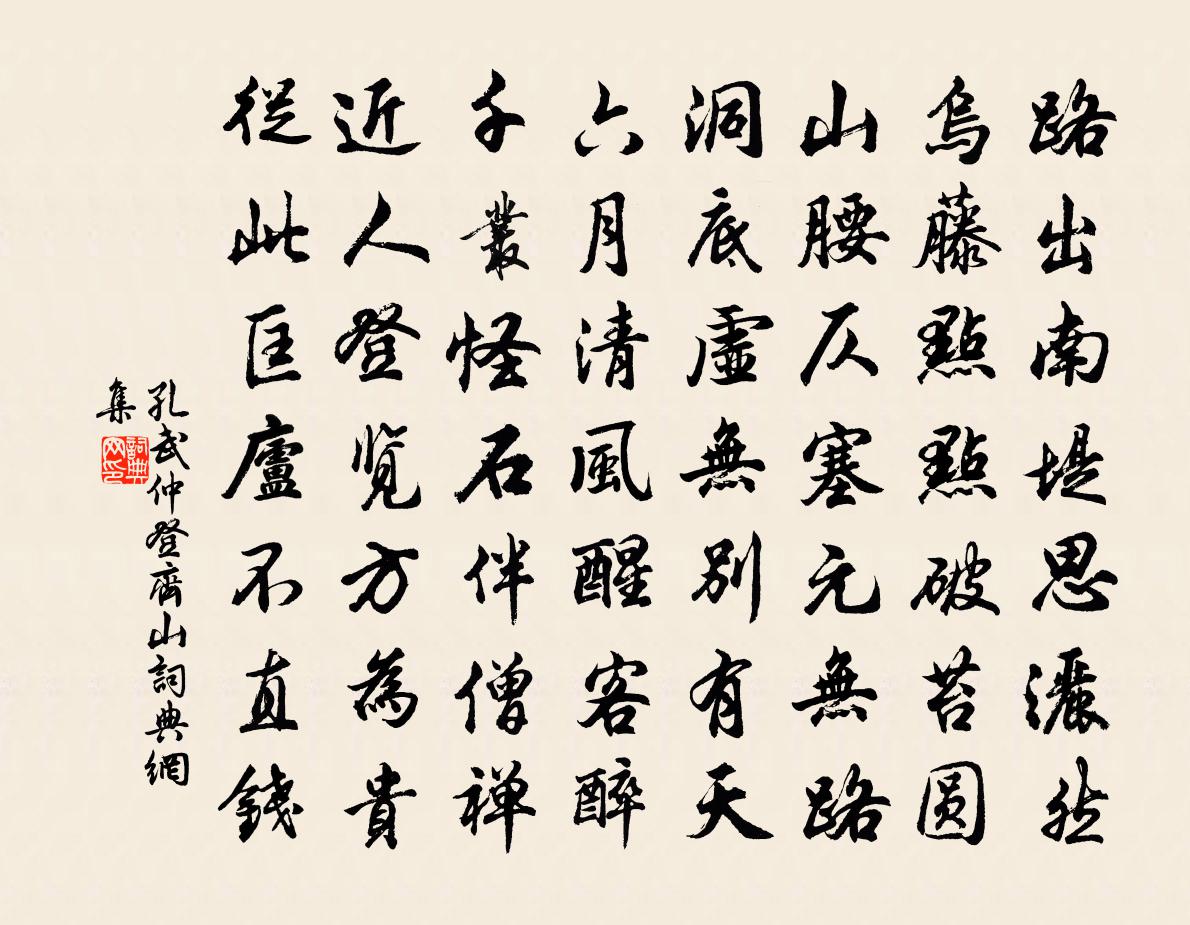 路出南堤思灑然
烏藤點點破苔圓
山腰仄塞元無路
洞底虛無別有天
六月清風醒客醉
千叢怪石伴僧禅
近人登览方為貴
從此匡廬不直錢
孔武仲登齊山詞典網
集
詞典
网印